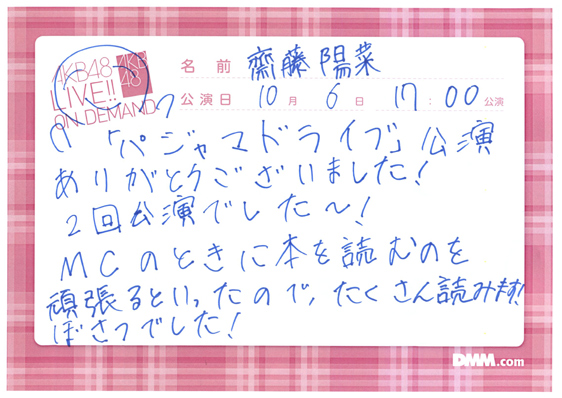 AKB48
LIVE!!
ON DEMAND
AKB
48
名前 齋藤陽菜
公演日 10月6日 17:00公演
「パジャマドライブ」公演
ありがとうございました!
2回公演でした〜!
MCのときに本を読むのを
頑張るといったので、たくさん読みます!
ぼさつでした!
DMM.com